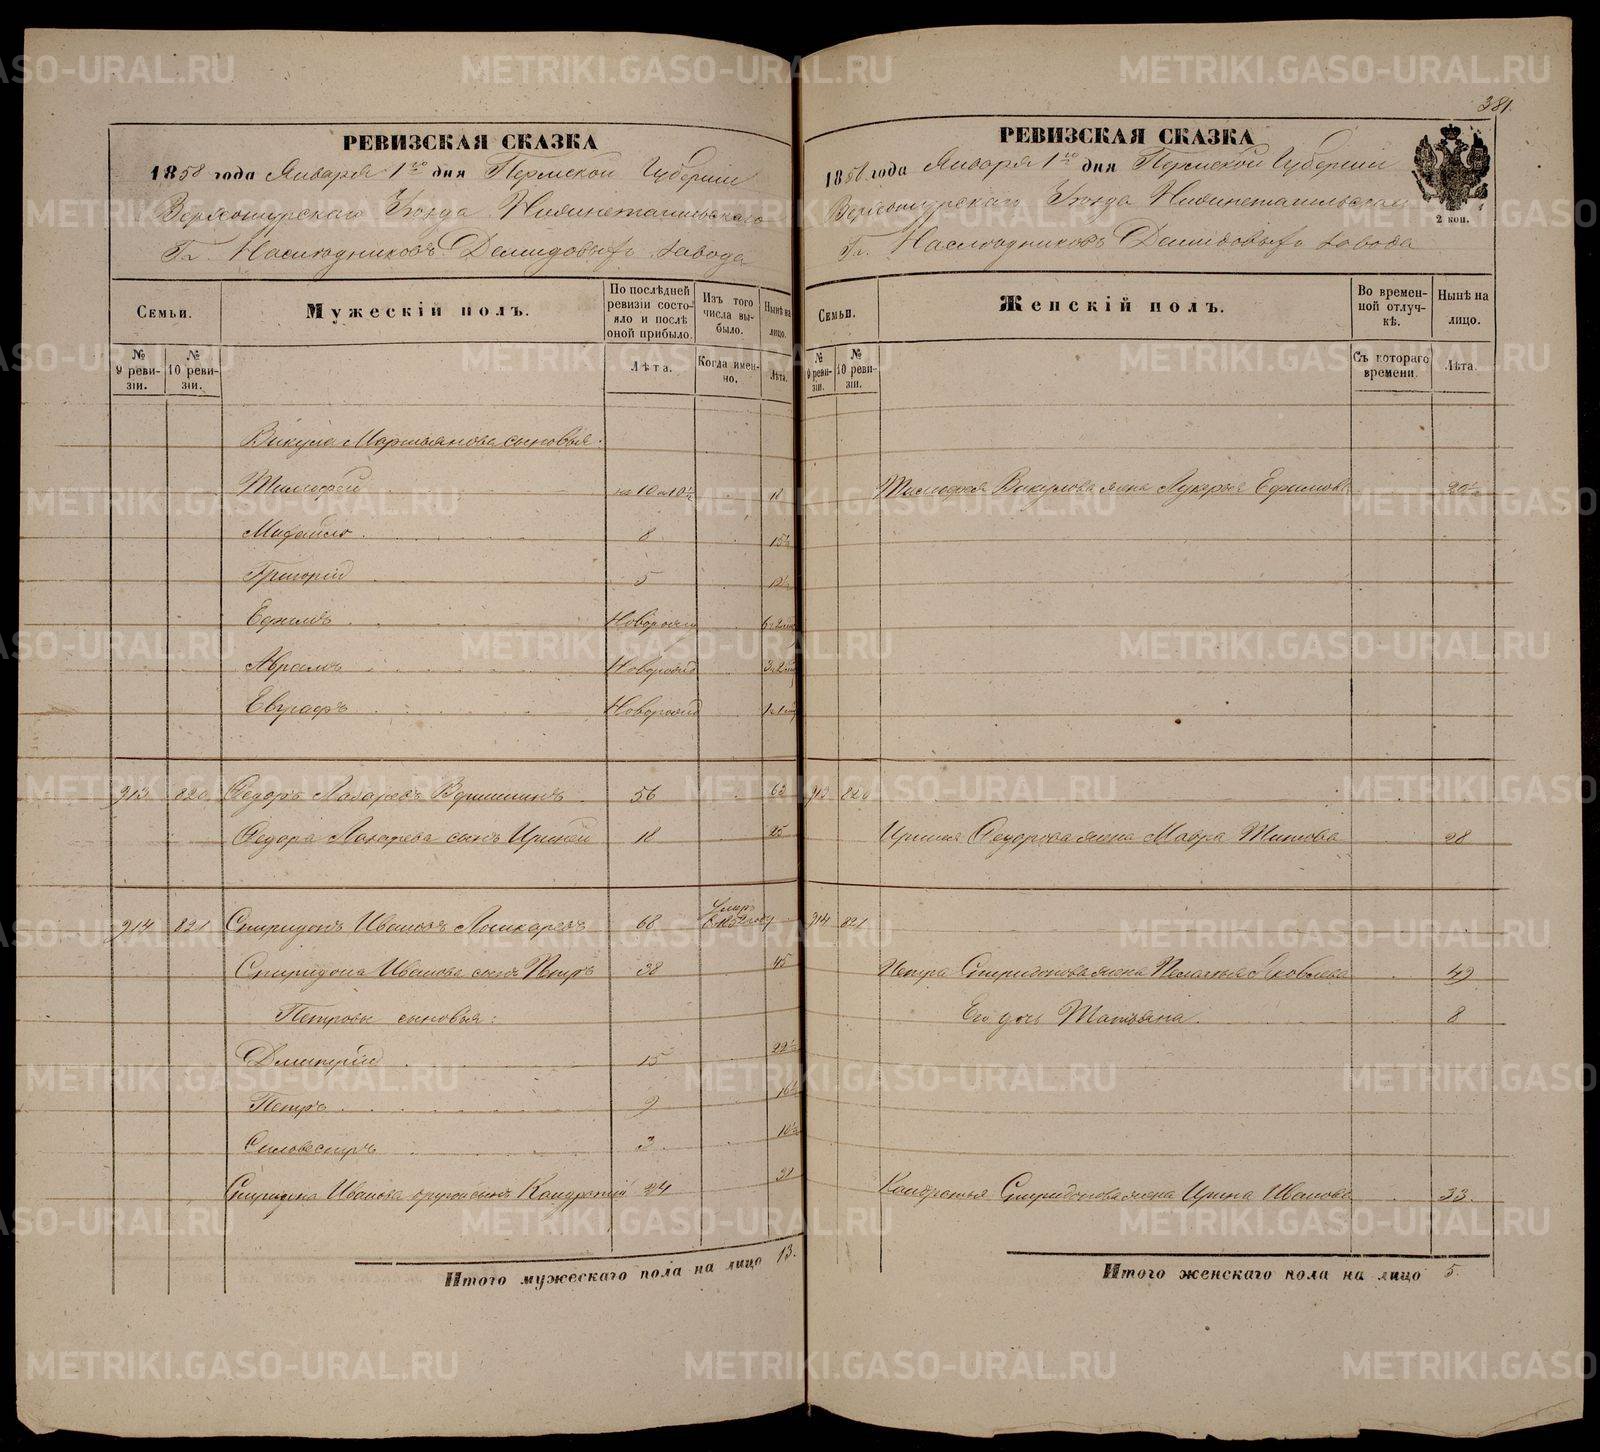 381.
РЕВИЗСКАЯ СКАЗКА
1858 года Января 1го дня Пермской Губернии
Верхотурскаго Уѣзда Нижнетагильскаго
Гг. Наслѣдниковъ Демидовыхъ завода
Семьи.
Мужескій полъ.
По послѣдней ревизіи состояло и послѣ оной прибыло.
Изъ того числа выбыло.
Нынѣ на лицо.
№ 9 ревизіи.
№ 10 ревизіи.
Лѣта.
Когда именно.
Лѣта.
Викула Мартьянова сыновья.
Тимофей 10
Михайло 8 15½
Григорій 5 12½
Ефимъ Новорожд
Абрамъ Новорожд
Евграфъ Новорожд
913 820 Федоръ Лазаревъ 56 63
Федора Лазарева сынъ 18 25
914 821 Спиридонъ Ивановъ 68 Умеръ
Спиридона Иванова сынъ Петръ 38 45
Петровы сыновья:
Дмитрій 15 22½
Петръ 9 16½
Сильвестръ 3 10½
Спиридона Иванова другой сынъ Кондратій 24 31
Итого мужескаго пола на лицо 13.
РЕВИЗСКАЯ СКАЗКА
1858 года Января 1го дня Пермской Губерніи
Верхотурскаго Уѣзда Нижнетагильскаго
Гг. Наслѣдниковъ Демидовыхъ завода
2 коп.
Семьи.
Женскій полъ.
Во временной отлучкѣ.
Нынѣ на лицо.
№ 9 ревизіи.
№ 10 ревизіи.
Съ котораго времени.
Лѣта.
Тимофея Викулова жена Лукерья Ефимова 20½
913 820
Федорова жена Мавра Титова 28
914 821
Петра Спиридонова жена Пелагея Яковлева 49
Его дочь Татьяна 8
Кондратья Спиридонова жена Ирина Иванова 33.
Итого женскаго пола на лицо 5.
METRIKI.GASO-URAL.RU